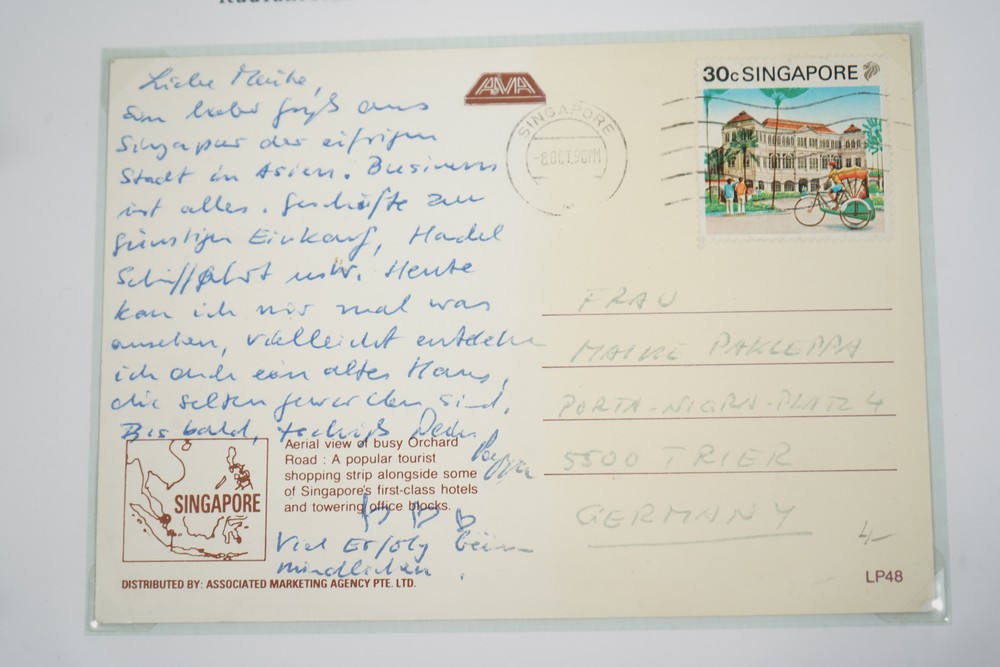 Liebe Maike,
ein lieber Gruß aus
Singapur der eifrigen
Stadt in Asien. Business
ist alles. Geschäfte zum
günstigen Einkauf, Handel
Schifffahrt usw. Heute
kan ich mir mal was
ansehen, vielleicht entdecke
ich auch ein altes Haus,
die selten geworden sind.
Bis bald, tschüß Dein
Pappa
Viel Erfolg beim
mündlichen.
AMA
SINGAPORE
-8 OCT 90 PM
30c SINGAPORE
FRAU
MAIKE PAKLEPPA
PORTA-NIGRA-PLATZ 4
5500 TRIER
GERMANY
4,-
SINGAPORE
Aerial view of busy Orchard
Road : A popular tourist
shopping strip alongside some
of Singapore's first-class hotels
and towering office blocks.
DISTRIBUTED BY: ASSOCIATED MARKETING AGENCY PTE. LTD.
LP48